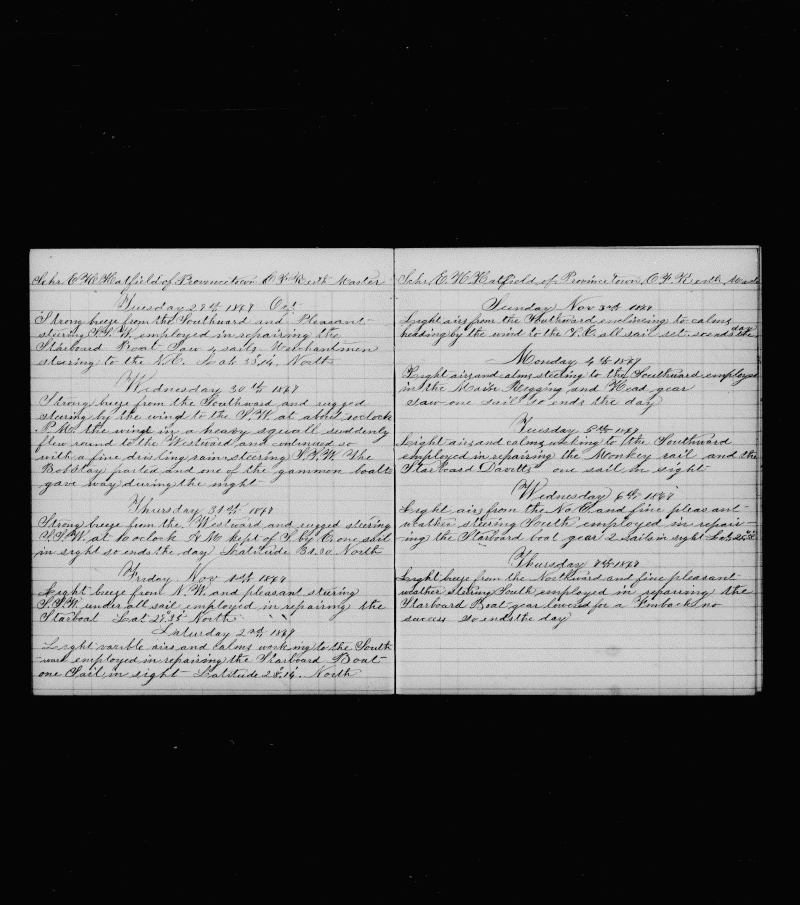 Schr E H Hatfield of Provincetown O F Keith Master
Tuesday 29th 1867 Oct
Strong breeze from the Southward and Pleasant
steering S.S.W. employed in repairing the
Starboard Boat Saw 4 sails Merchantmen
steering to the N.E. Lat 33.14. North
Wednesday 30th 1867
Strong breeze from the Southward and rugged
steering by the wind to the S.W. at about 5 oclock
P.M. the wind in a heavy squall suddenly
flew round to the Westward and continued so
with a fine drisling rain steering S.S.W. The
Bobstay parted and one of the gammon boalts
gave way during the night
Thursday 31st 1867
Strong breeze from the Westward and rugged steering
S.S.W. at 10 oclock A.M kept of S. by E. one sail
in sight so ends the day Latitude 31.30 North
Friday Nov 1st 1867
Light breeze from N.W. and pleasant stering
S.S.W. under all sail employed in repairing the
Starboat Lat 29.35 North
Saturday 2nd 1867
Light varible airs and calms working to the South
ward employed in repairing the Starboard Boat
one Sail in sight Latitude 28.14. North
Schr E. H. Hatfield of Provincetown O F Keith
Sunday Nov 3rd 1867
Light airs from the Southward enclineing to calms
heading by the wind to the S.E. all sail set so ends the
day
Monday 4th 1867
Light airs and calms steering to the Southward employed
in the Main Rigging and Head gear
saw one sail so ends the day
Tuesday 5th 1867
Light airs and calms working to the Southward
employed in repairing the Monkey rail and the
Starboard Davitts one sail in sight
Wednesday 6th 1867
Light airs from the No E. and fine pleasant
weather steering South employed in repair-
ing the Starboard boat gear 2 Sails in sight Lat
Thursday 7th 1867
Light breeze from the Northward and fine pleasant
weather stering South employed in repairing the
Starboard Boat gear lowered for a Finback no
success So ends the day